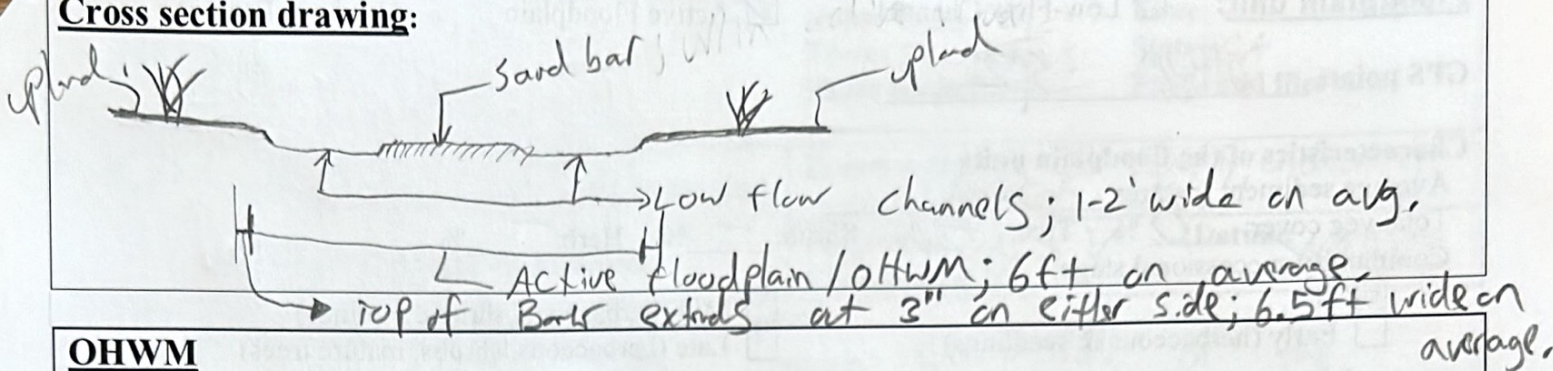 Cross section drawing:
upland
sand bar
upland
Low flow channels; 1-2' wide on avg.
Active floodplain/OHWM; 6ft on average
Top of Bank extends at 3" on either side; 6.5ft wide on
average.
OHWM